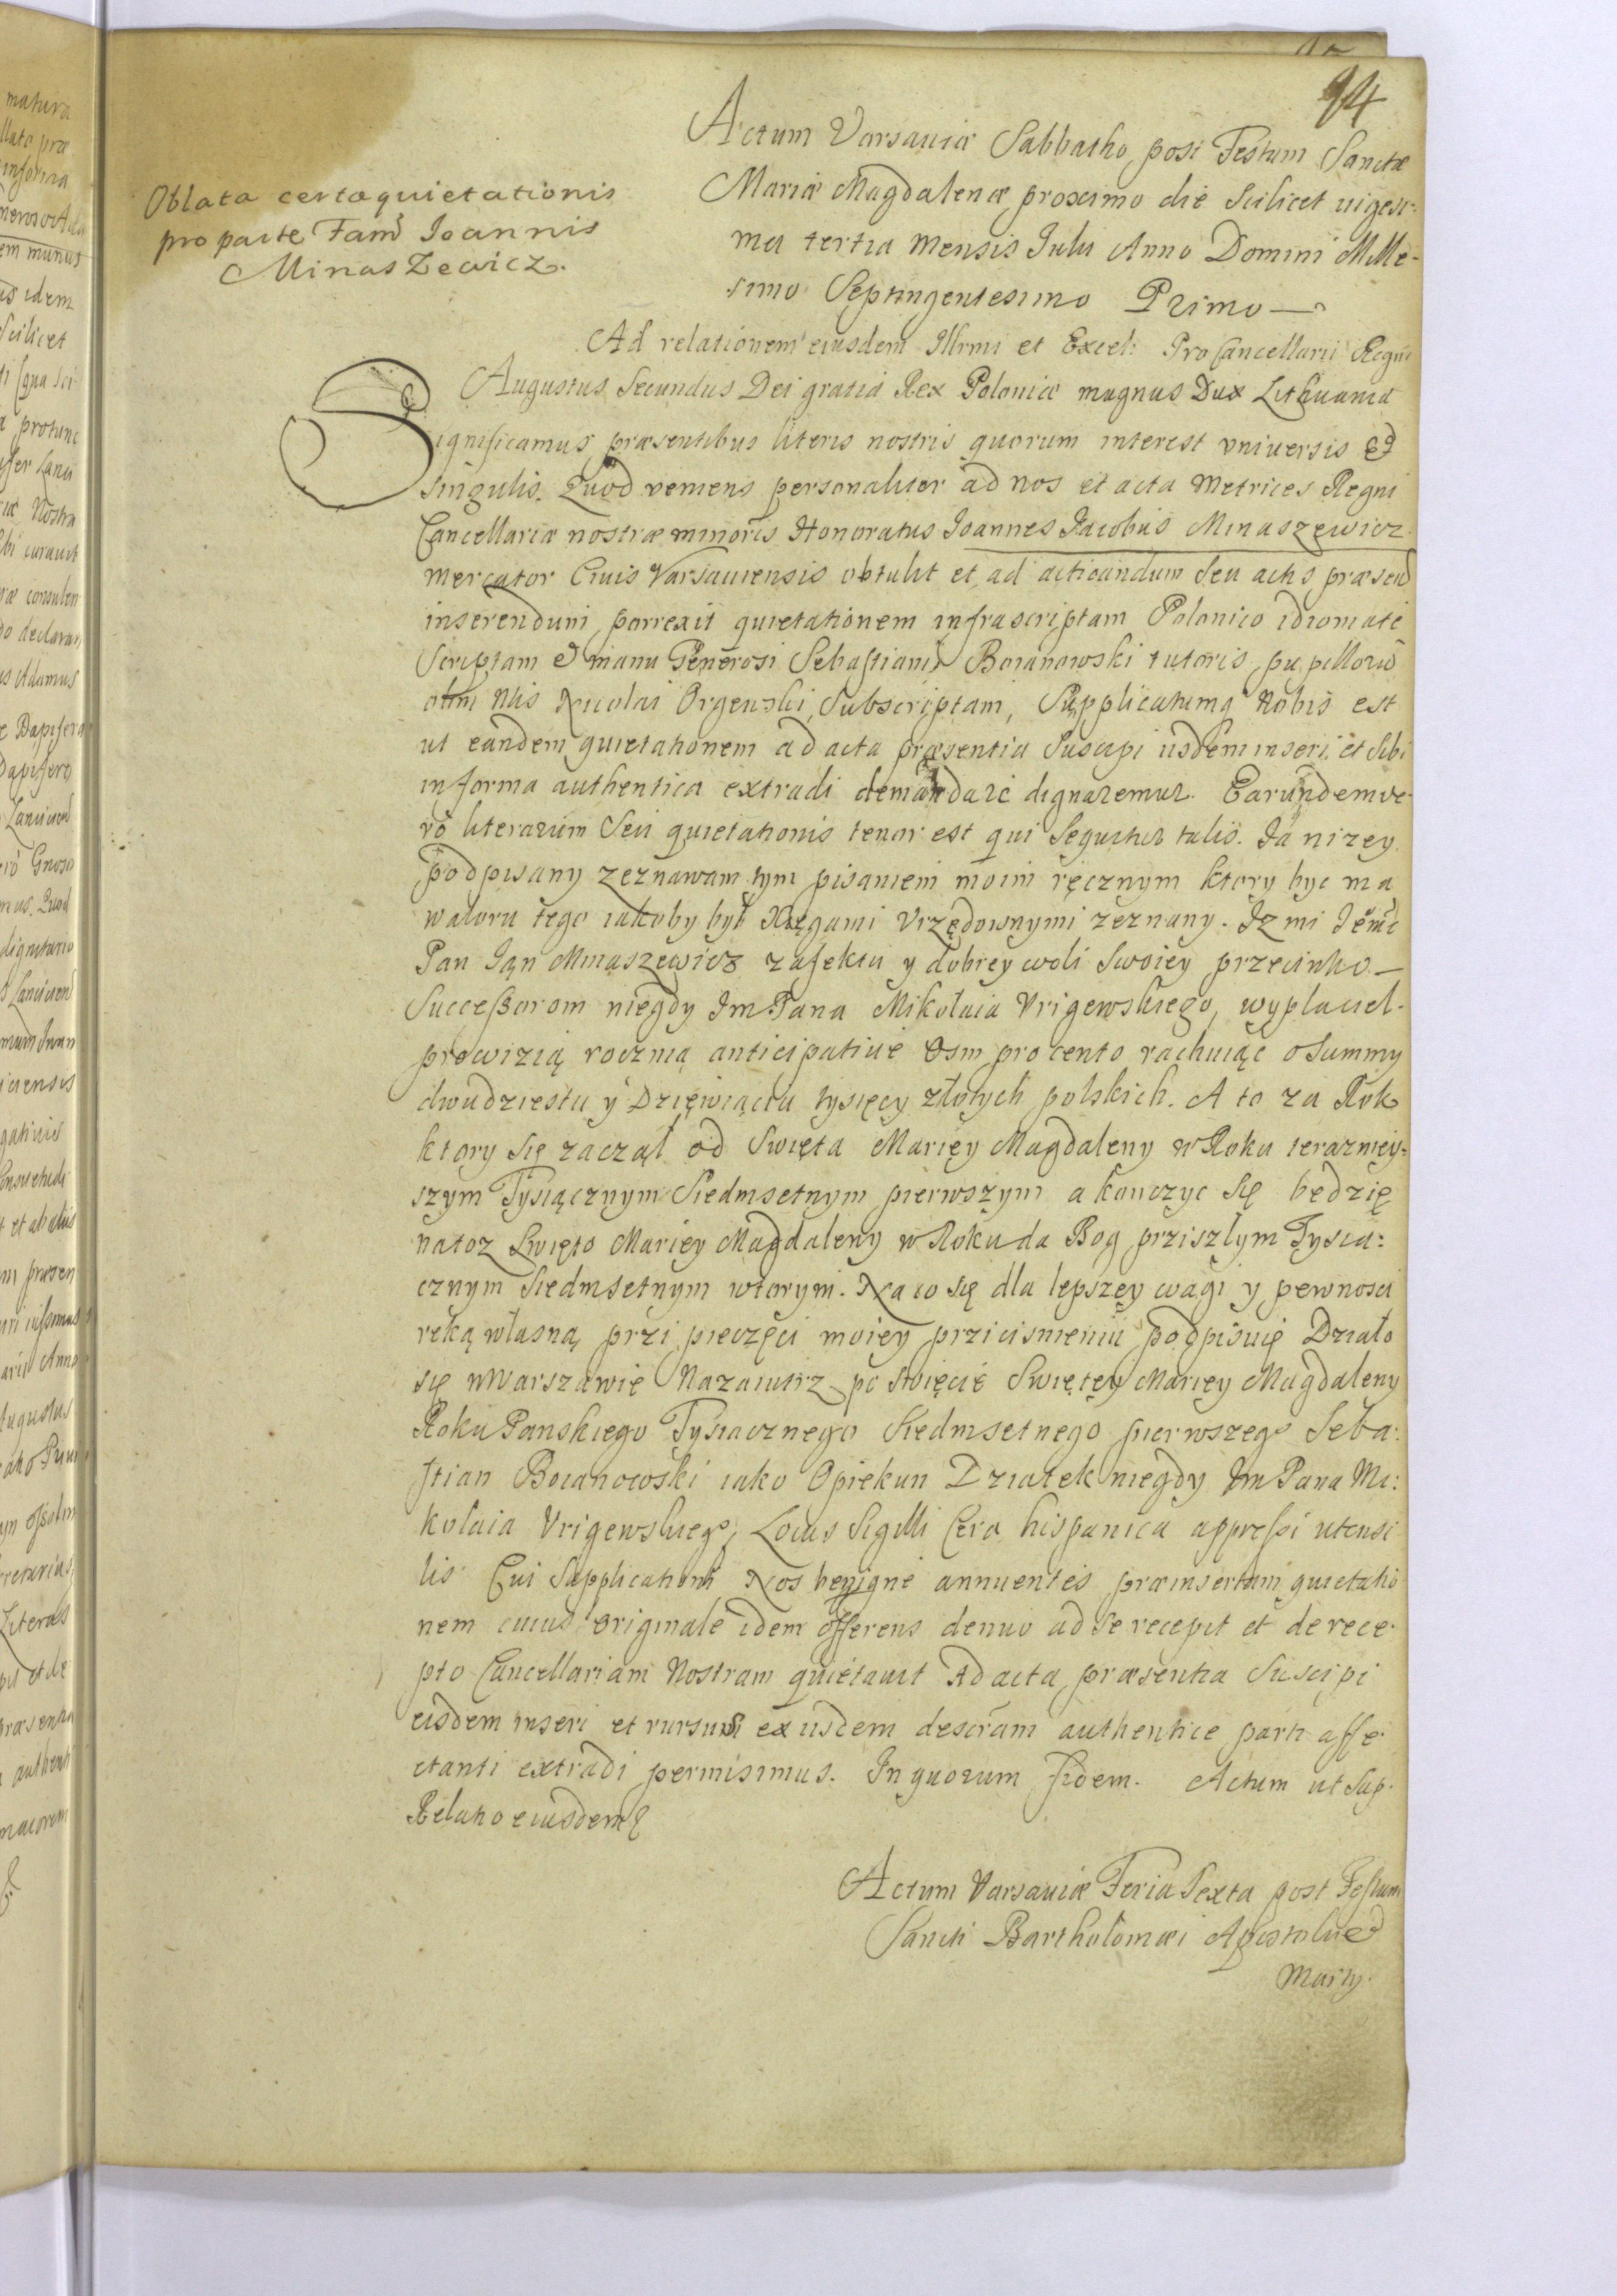 94
Actum Varsaviæ Sabbatho post Festum Sanctæ
Mariæ Magdalenæ proximo die Scilicet vigesi-
ma tertia Mensis Julii Anno Domini Mille-
simo Septingentesimo Primo
Oblata certæ quietationis
pro parte Fam Joannis
Minaszewicz.
Ad relationem eiusdem Illrmi et Excel: ProCancellarii Regni
Augustus Secundus Dei gratia Rex Poloniæ magnus Dux Lithuaniæ
Significamus præsentibus literis nostris quorum interest vniversis et
singulis. Quod veniens personaliter ad nos et acta Metrices Regni
Cancellariæ nostræ minoris Honoratus Joannes Jacobus Minaszewicz
Mercator Civis Varsaviensis obtulit et ad acticandum Seu actis præsend
inserendum porrexit quietationem infrascriptam Polonico idiomate
Scriptam et manu Generosi Sebastiani Boianowski tutoris pupilloru
olim Nlis Nicolai Orgewski, Subscriptam, Supplicatumq Nobis est
ut eandem quietationem ad acta præsentia Suscipi iisdem inseri et Sibi
in forma authentica extradi demandare dignaremur. Earundem ve-
ro literarum Seu quietationis tenor est qui Sequitur talis. Ja nizey
podpisany zeznawam tym pisaniem moim ręcznym ktory byc ma
waloru tego iakoby był Xięgami Vrzędownymi zeznany. Iz mi Jemc
Pan Jąn Minaszewicz z afektu y dobrey woli Swoiey przeciwko
Successorom niegdy Im Pana Mikołaia Vrigewskiego, wypłacieł
prowizią rocznią anticipative osm pro cento rachuiąc o Summy
dwudziestu y Dziewiąciu tysięcy złotych polskich. A to za Rok
ktory się zaczął od Swięta Mariey Magdaleny w Roku terazniey-
szym Tysiącznym Siedmsetnym pierwszym a konczyc Się będzie
natoz Swięto Mariey Magdaleny w Roku da Bog prziszłym Tysia:
cznym Siedmsetnym wtorym. Na co się dla lepszey wagi y pewnosci
reką własną przi pieczęci moiey prziciśnieniu podpisuię Działo
się w Warszawie Nazaiutrz po Swięcie Swiętey Mariey Magdaleny
Roku Panskiego Tysiacznego Siedmsetnego pierwszego Seba:
stian Boianowski iako Opiekun Dziatek niegdy Im Pana Mi:
kołaia Vrigewskiego, Locus Sigilli Cera hispanica appressi utensi
lis Cui Supplicationi Nos benigne annuentes præinsertam quietatio
nem cuius originale idem offerens denuo ad se recepit et de rece-
pto Cancellariam Nostram quietavit Ad acta præsentia Suscipi
eisdem inseri et rursum ex iisdem descram authentice parti affe-
ctanti extradi permisimus. In quorum fidem. Actum ut Sup.
Relatio eiusdem
Actum Varsaviæ Feria Sexta post Festum
Sancti Bartholomæi Apostoli et
Marty.